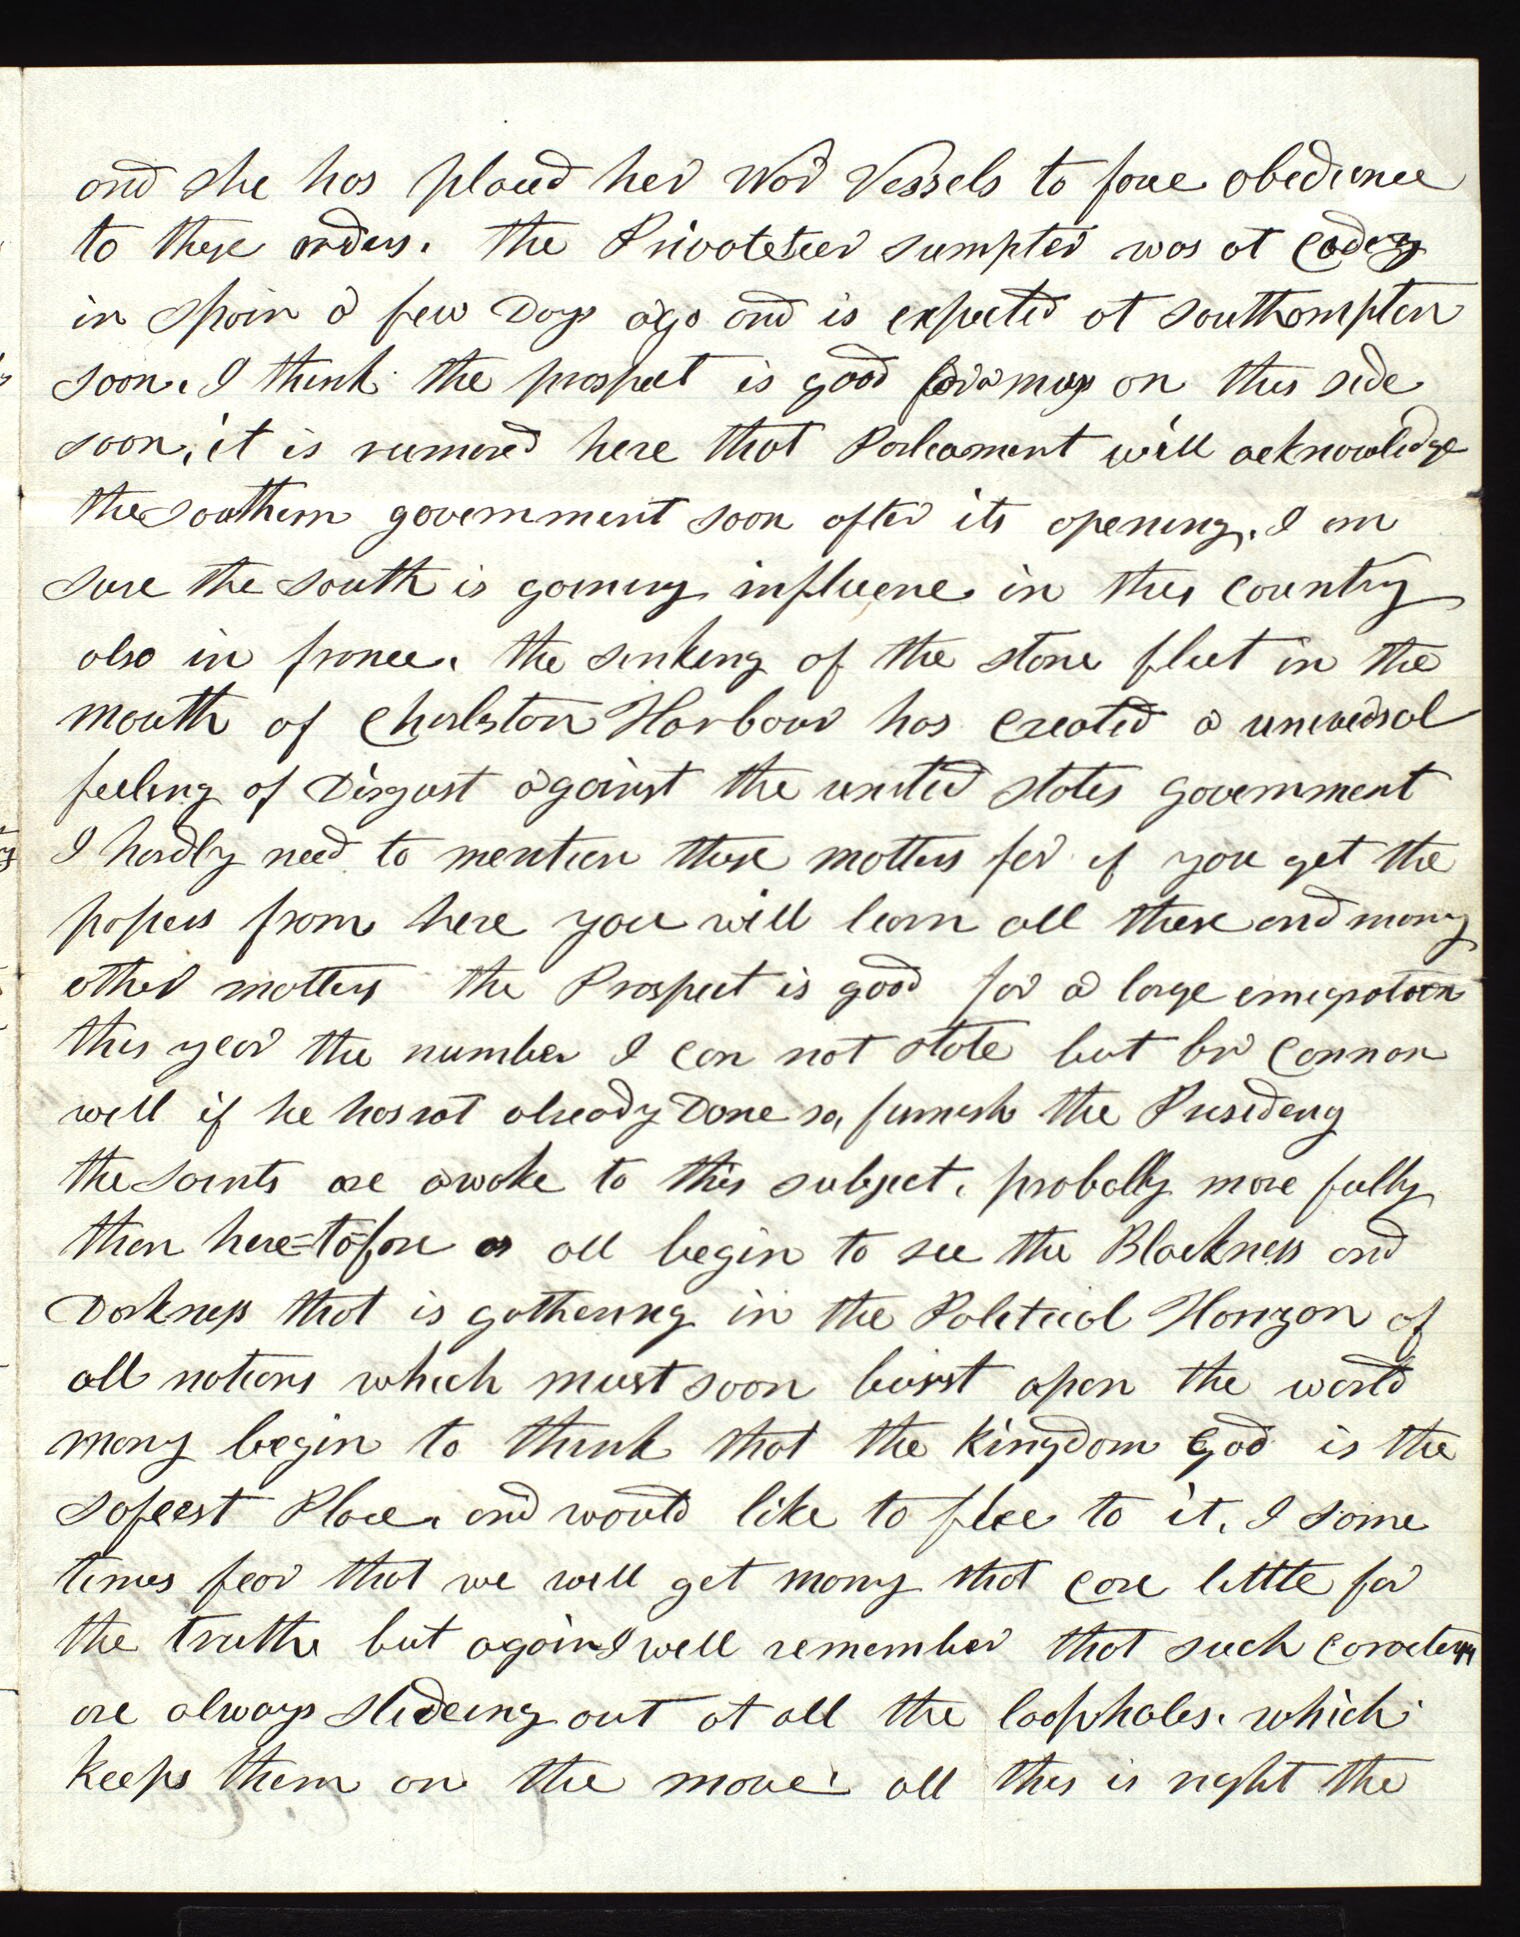 and she has placed her War Vessels to force obedience
to these orders. the Privateteer sumpter was at Cadez
in Spain a few Days ago and is expected at Southampton
soon. I think the prospect is good for a muss on this side
soon, it is rumered here that Parleament will acknowledge
the southern government soon after its opening, I am
sure the south is gaining influence in this country
also in france. the sinking of the stone fleet in the
mouth of Charlston Harbour has created a universal
feeling of Disgust against the united states government
I hardly need to mention these matters for if you get the
papers from here you will learn all these and many
other matters the Prospect is good for a large emegration
this year the number I can not state but br Cannon
will if he has not already Done so, furnish the Presidency
the saints are awake to this subject. probably more fully
than here=to=fore as all begin to see the Blackness and
Darkness that is gathering in the Political Horizon of
all nations which must soon burst apon the world
many begin to think that the Kingdom God is the
safeest Place. and would like to flee to it. I some
times fear that we will get many that care little for
the truth but again I well remember that such caracters
are always slideing out at all the loopholes. which
keeps them on the move. all this is right the